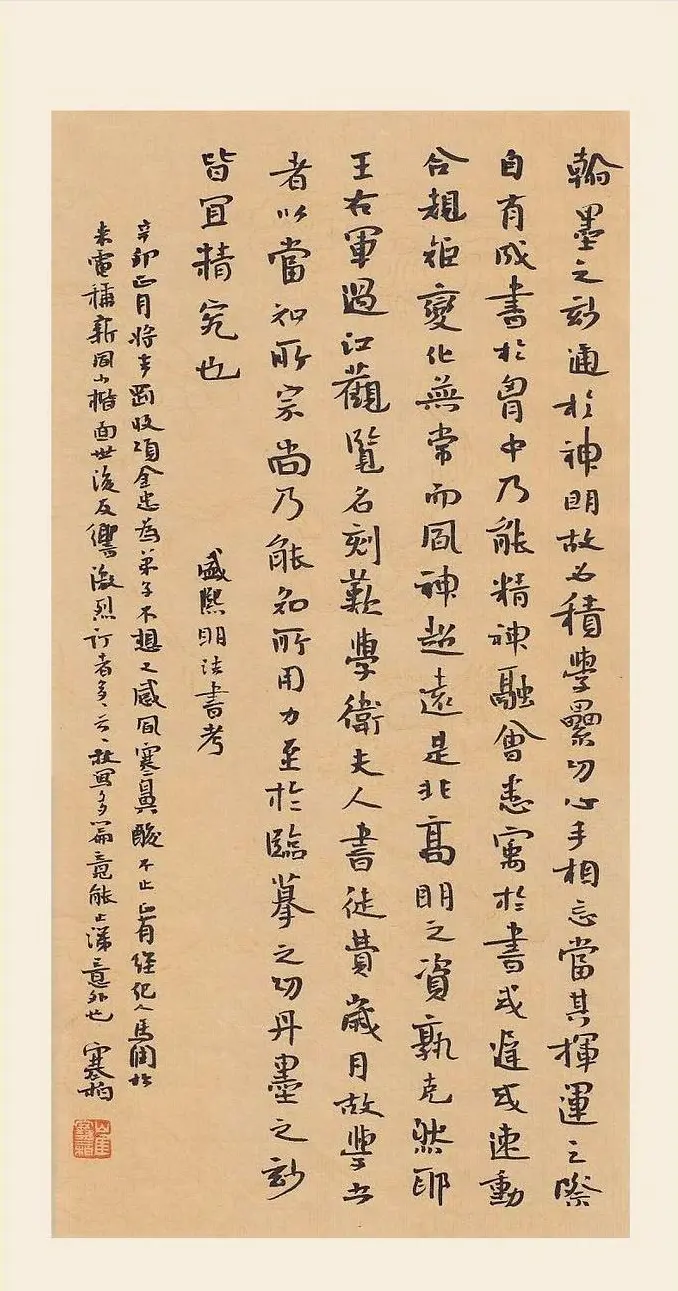 翰墨之妙通於神明故必積學累功心手相忘當其揮運之際
自有成書於胷中乃能精神融會悉寓於書或遲或速動
合規矩變化無常而風神超遠是非高明之資孰克然耶
王右軍過江觀覽名刻歎學衛夫人書徒費歲月故學書
者以當知所宗尚乃能知所用力至於臨摹之功丹墨之妙
皆宜精究也
盛熙明法書考
辛卯正月將去 收項金忠為弟子不想又感風寒鼻酸不止 有經紀人馬 於
來電稱新 小楷面世後反響激烈訂者多云云 多篇竟能止涕意外也 寒柏